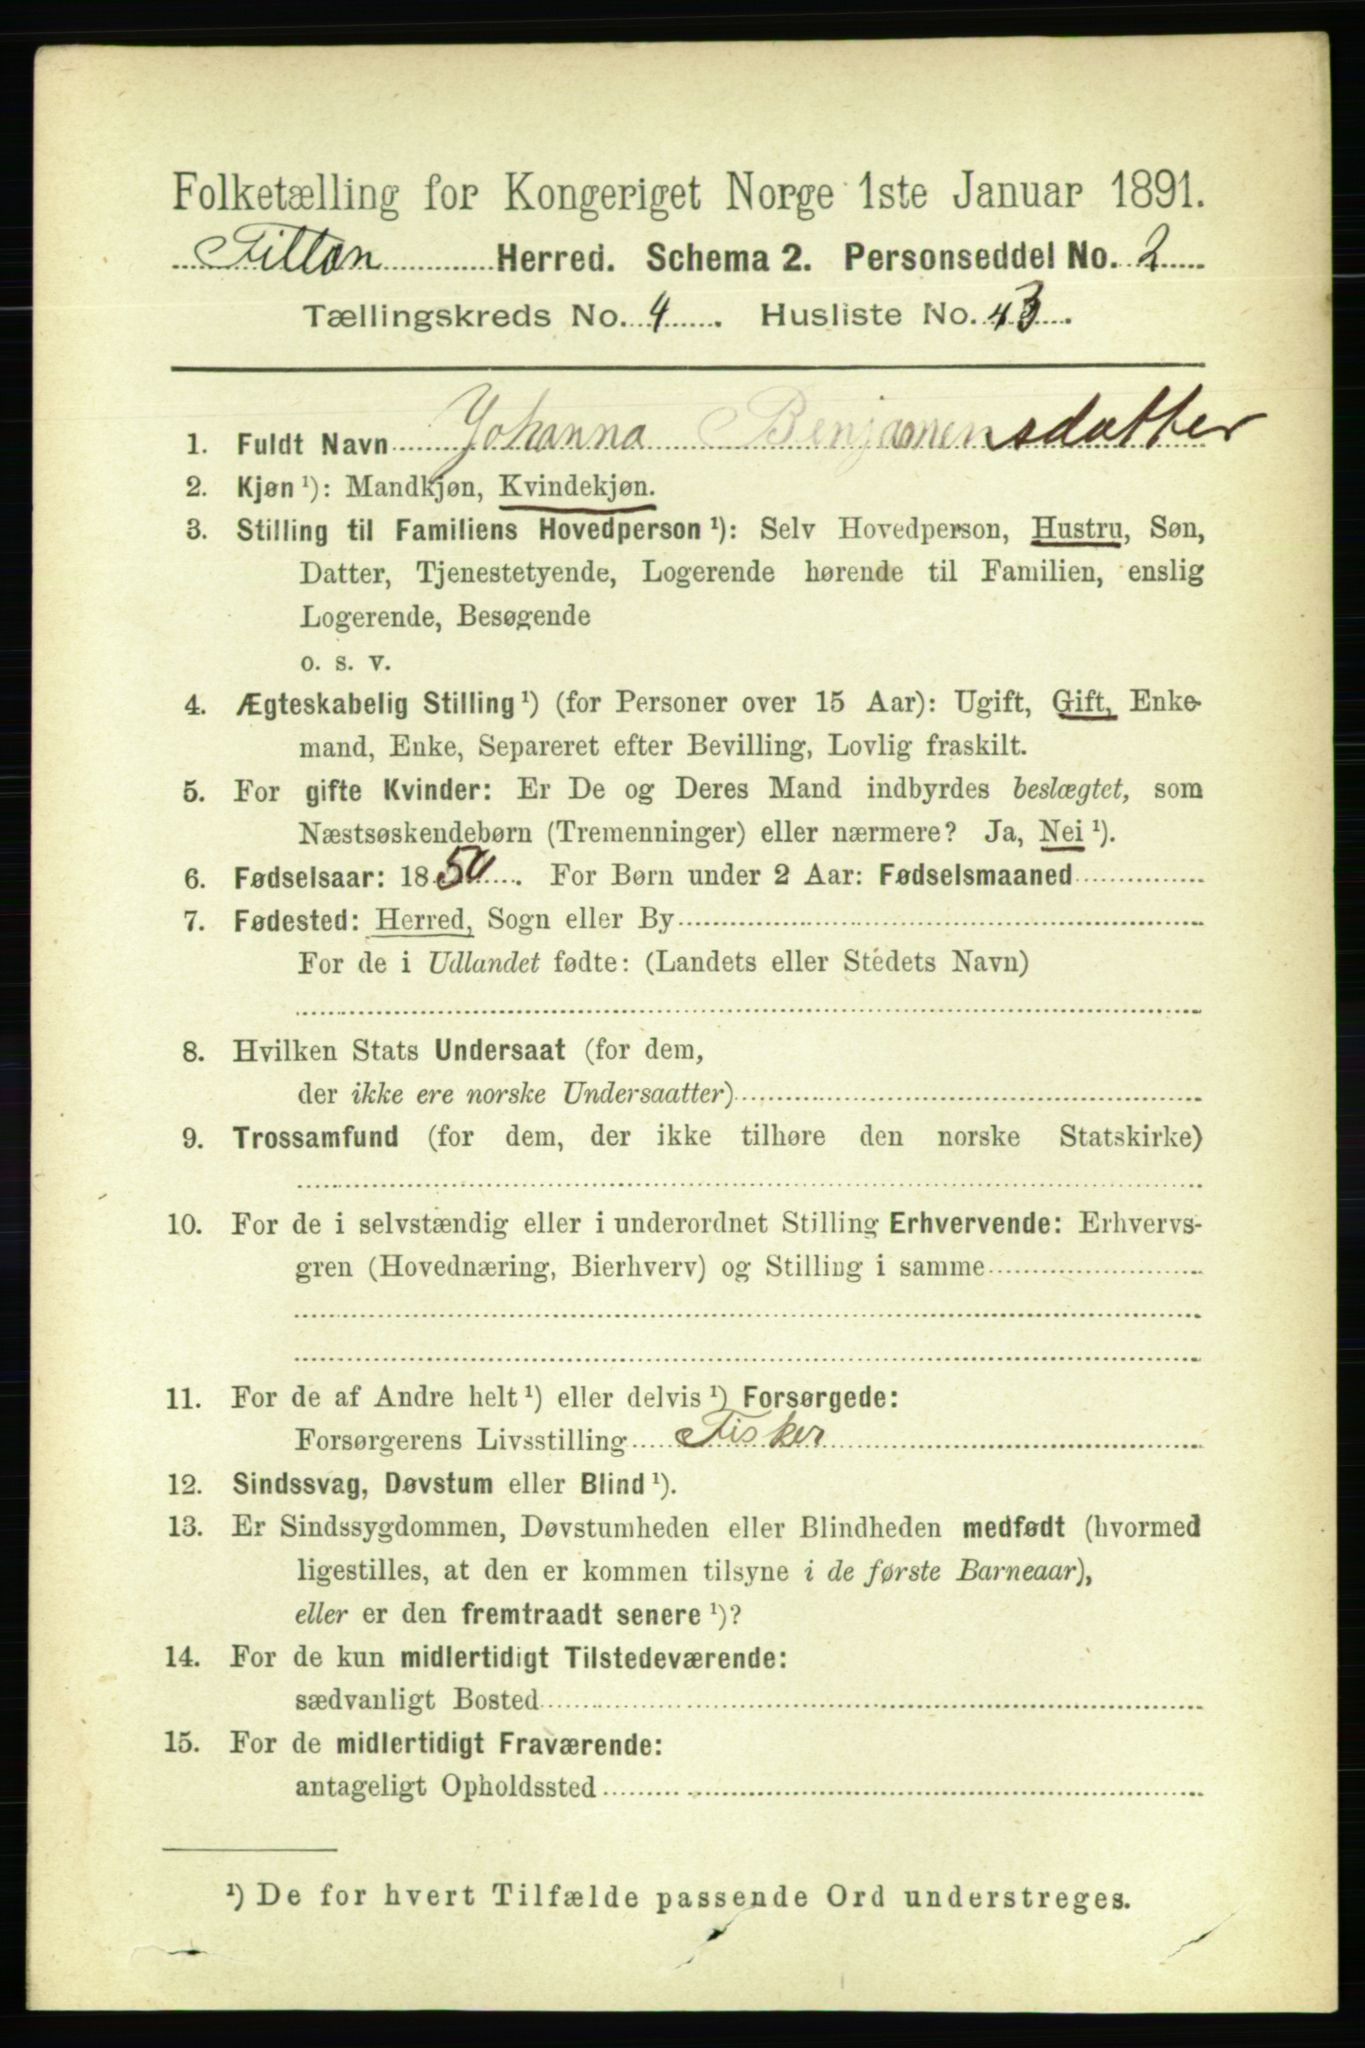 Folketælling for Kongeriget Norge 1ste Januar 1891.
Fillan Herred. Schema 2. Personseddel No. 2
Tællingskreds No. 4. Husliste No. 43.
1. Fuldt Navn Johanna Benjamensdatter
2. Kjøn ¹): Mandkjøn, Kvindekjøn.
3. Stilling til Familiens Hovedperson ¹): Selv Hovedperson, Hustru, Søn,
Datter, Tjenestetyende, Logerende hørende til Familien, enslig
Logerende, Besøgende
o. s. v.
4. Ægteskabelig Stilling ¹) (for Personer over 15 Aar): Ugift, Gift, Enke-
mand, Enke, Separeret efter Bevilling, Lovlig fraskilt.
5. For gifte Kvinder: Er De og Deres Mand indbyrdes beslægtet, som
Næstsøskendebørn (Tremenninger) eller nærmere? Ja, Nei ¹).
6. Fødselsaar: 1854. For Børn under 2 Aar: Fødselsmaaned
7. Fødested: Herred, Sogn eller By
For de i Udlandet fødte: (Landets eller Stedets Navn)
8. Hvilken Stats Undersaat (for dem,
der ikke ere norske Undersaatter)
9. Trossamfund (for dem, der ikke tilhøre den norske Statskirke)
10. For de i selvstændig eller i underordnet Stilling Erhvervende: Erhvervs-
gren (Hovednæring, Bierhverv) og Stilling i samme
11. For de af Andre helt ¹) eller delvis ¹) Forsørgede:
Forsørgerens Livsstilling Fisker
12. Sindssvag, Døvstum eller Blind ¹).
13. Er Sindssygdommen, Døvstumheden eller Blindheden medfødt (hvormed
ligestilles, at den er kommen tilsyne i de første Barneaar),
eller er den fremtraadt senere ¹)?
14. For de kun midlertidigt Tilstedeværende:
sædvanligt Bosted
15. For de midlertidigt Fraværende:
antageligt Opholdssted
¹) De for hvert Tilfælde passende Ord understreges.